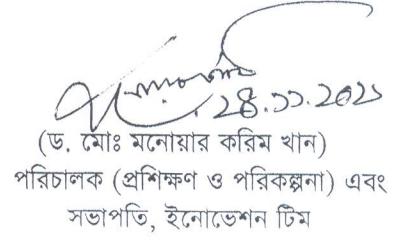 ২৪.১১.২০২১
(ড. মোঃ মনোয়ার করিম খান)
পরিচালক (প্রশিক্ষণ ও পরিকল্পনা) এবং
সভাপতি, ইনোভেশন টিম